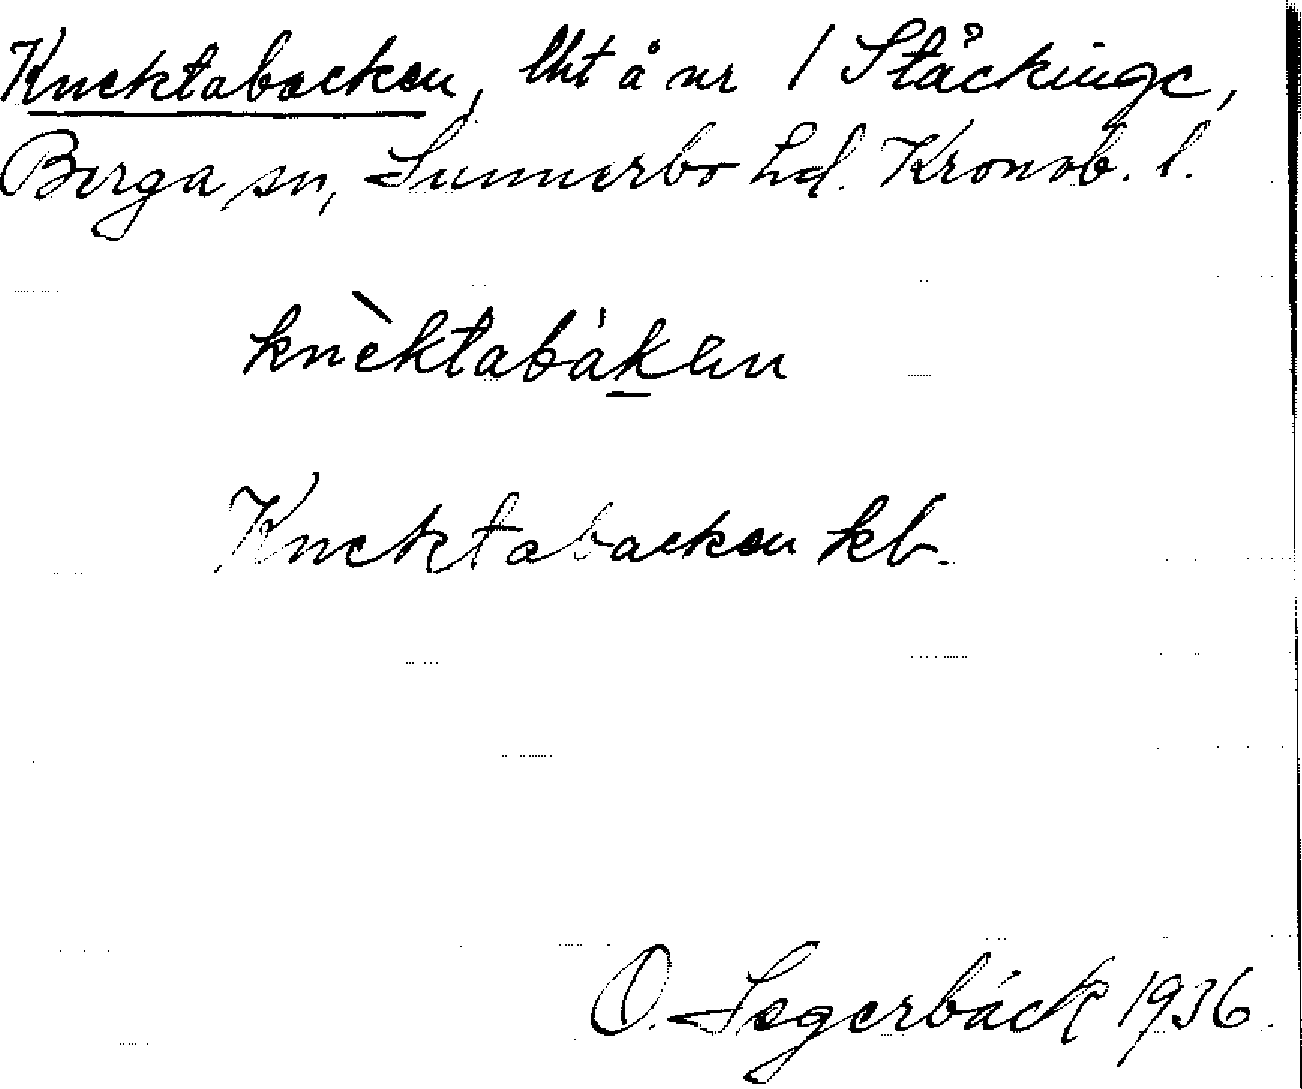 Knektabacken, lht å nr 1 Stäckinge,
Berga sn, Sunnerbo hd. Kronob. l.
knèktabáken
Knektabacken kb.
O. Segerbäck 1936.